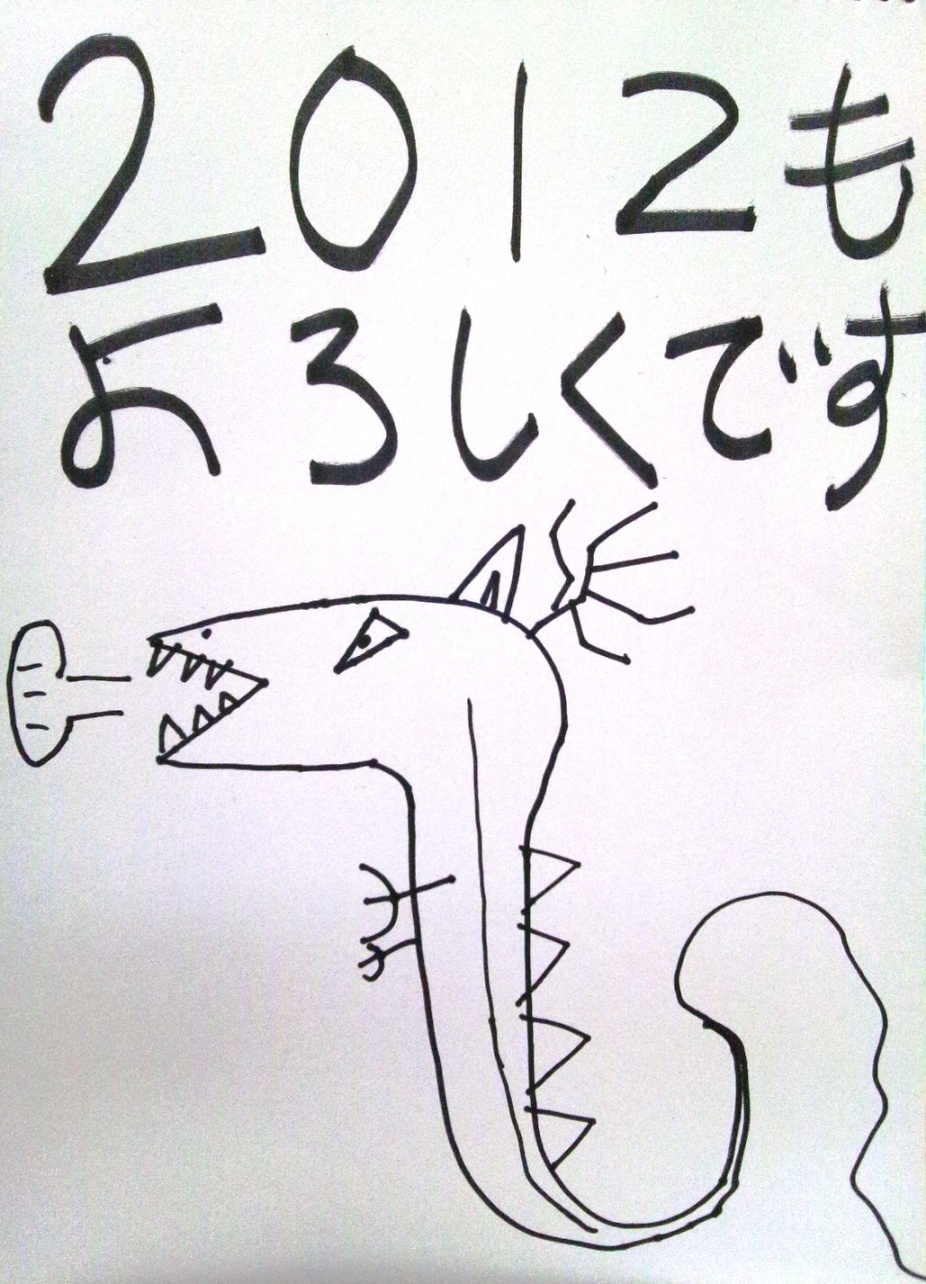 2012も
よろしくです